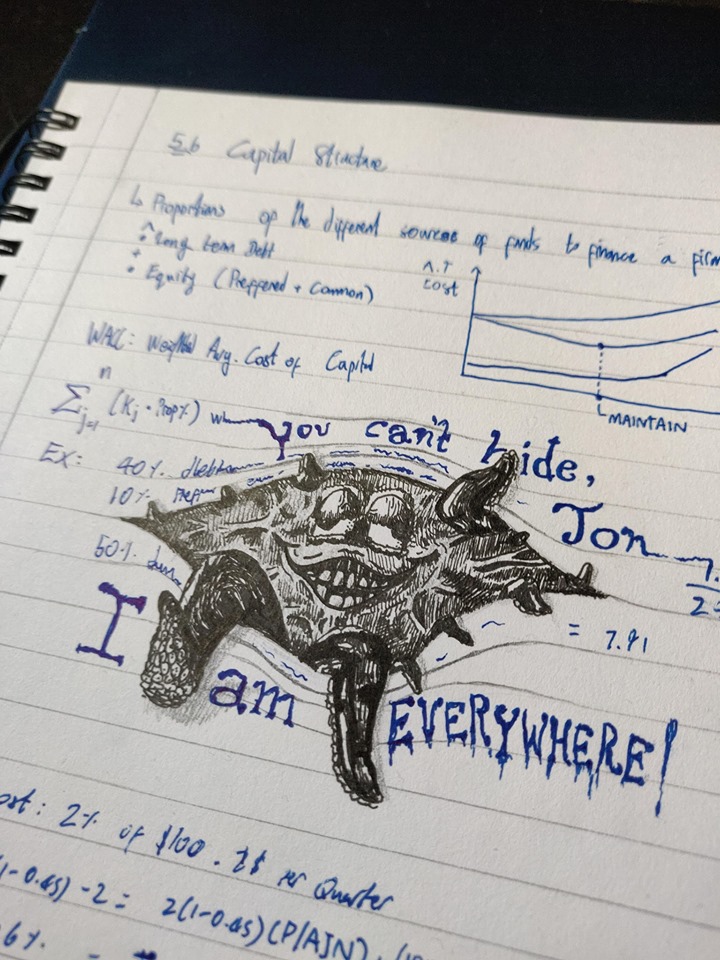 5.6 Capital Structure
↳ Proportions of the different sources of funds to finance a firm
• Long term Debt
+
• Equity (Preffered + Common)
A.T
Cost
MAINTAIN
WACC: Weighted Avg. Cost of Capital
n
∑ (Kj · Prop%) wh
j=1
You can't hide,
Jon
EX: 40%. debt
10%. Pref
50%.
7.
2
= 7.91
I am EVERYWHERE!
ost: 2% of $100. 2$ per Quarter
(1-0.45) -2 = 2(1-0.45)(P/A,N)
6%.